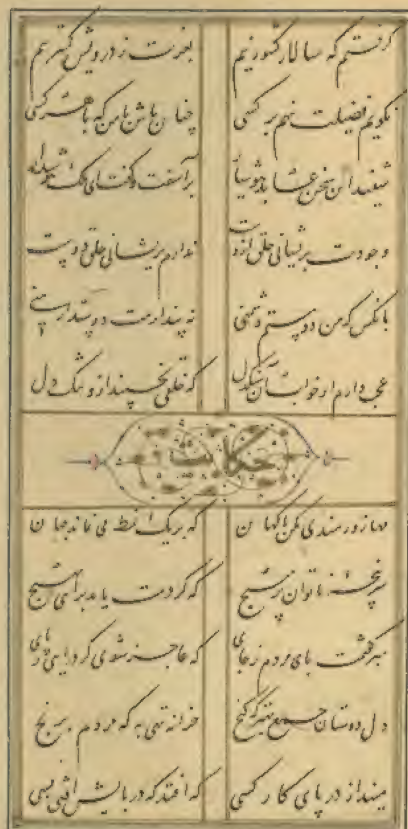 گرفتم که سالار کشور نیم بعزت ز درویش کمتر نیم
نگویم فضیلت نهم بر کسی چنان باش با من که با هر کسی
شنید این سخن عابد هوشیار برآشفت و گفت ای ملک هوش دار
وجودت پریشانی خلق ازوست ندارم پریشانی خلق دوست
بانکس که من دوستم دشمنی نه پندارمت دوستدار منی
عجب دارم ار خواب آن سنگدل که خلقی بخسپند ازو تنگ دل
حکایت
مها زورمندی مکن با کهان که بر یک نمط می نماند جهان
سر پنجهٔ ناتوان بر مپیچ که گر دست یابد بر آئی بهیچ
مبر گفتمت پای مردم ز جای که عاجز شوی گر در آیی ز پای
دل دوستان جمع بهتر که گنج خزانه تهی به که مردم برنج
مینداز در پای کار کسی که افتد که در پایش افتی بسی